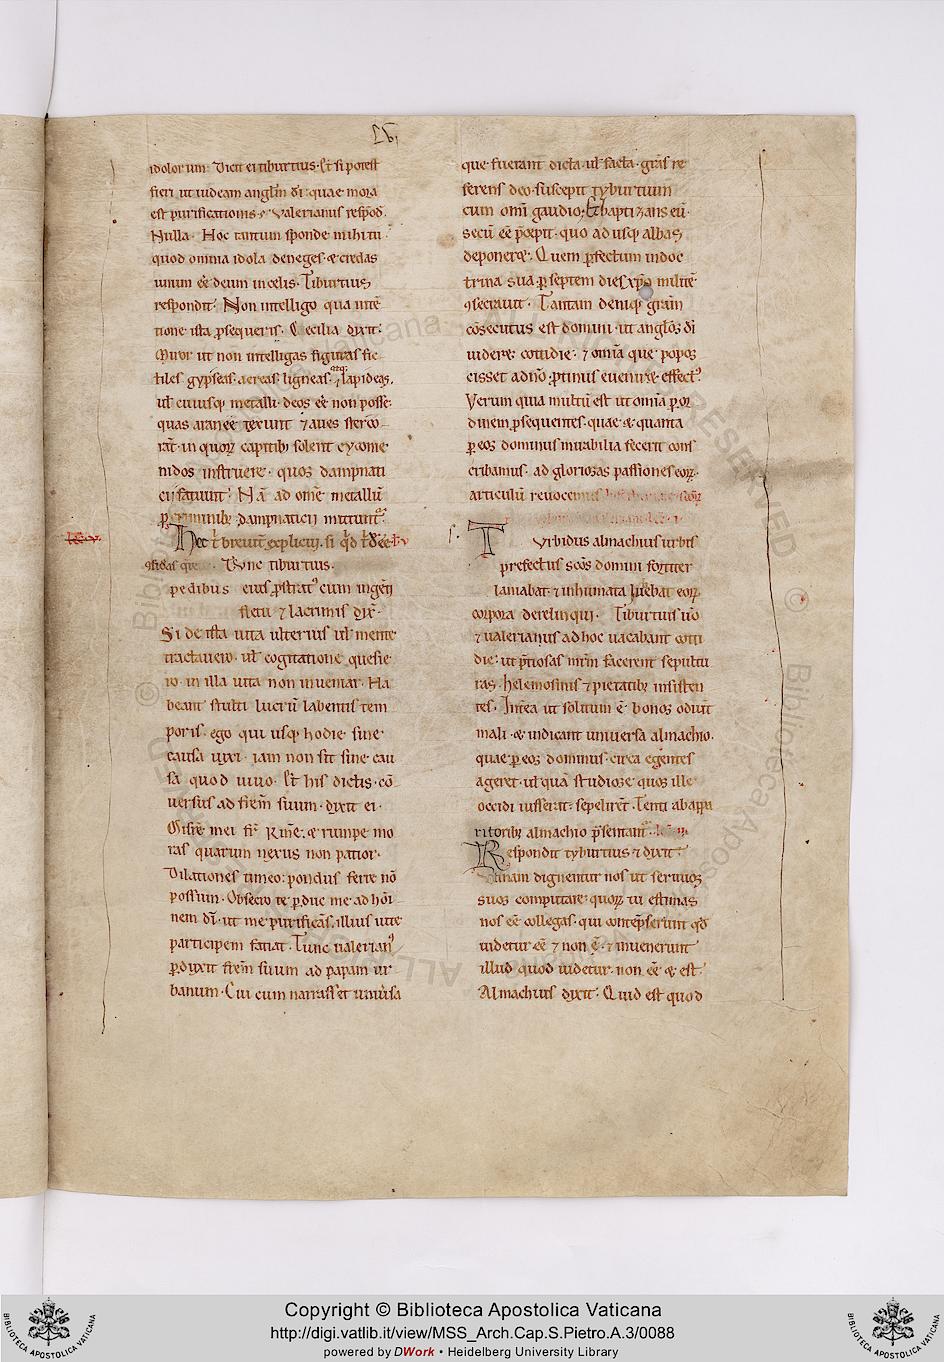 idolorum. Dicit ei tiburtius. Et si potest
fieri ut uideam anglm di: quae mora
est purificationis? Valerianus respod.
Nulla. Hoc tantum sponde mihi tu
quod omnia idola deneges. & credas
unum eē deum in celis. Tiburtius
respondit: Non intelligo qua intē
tione ista ꝑsequeris. Cecilia dixit:
Miror ut non intelligas figuras fic
tiles gypseas. aereas. ligneas. atq; lapideas.
ul cuiusq; metalli. deos eē non posse:
quas araneę texunt ⁊ aues sterco
rat. in quorꝝ capitib; solent cyconię
nidos instruere. quos dampnati
eijsatuunt: Nā ad omē metallū
ꝑ criminib; dampnaticij mittunt᷑
Hec
Tunc tiburtius
pedibus eius ꝓstratꝰ cum ingeti
fletu ⁊ lacrimis dix̄.
Si de ista uita ulterius ul mente
tractauero. ul cogitatione quesie
ro. in illa uita non inueniar. Ha
beant stulti lucrū labentis tem
poris. ego qui usq; hodie sine
causa uixi. iam non sit sine cau
sa quod uiuo. Et his dictis. cō
uersus ad frēm suum. dixit ei.
Misere mei fr̄ kme. & rumpe mo
ras quarum nexus non patior.
Dilationes timeo: pondus ferre nō
possum. Obsecro te ꝑduc me ad hōi
nem dī. ut me purificās. illius uite
participem faciat. Tunc ualerianꝰ
ꝑduxit frēm suum ad papam ur
banum. Cui cum narrasset uniuersa
que fuerant dicta. ul facta. gr̄as re
ferens deo. suscepit tyburtium
cum omī gaudio. Et baptizans eū.
secū eē p̄cepit. quo adusq; albas
deponeret. Quem ꝑfectum in doc
trina sua. ꝑ septem dies xp̄o militē
ꝯsecrauit. Tantam deniq; grām
cōsecutus est domini. ut anglos dī
uideret cottidie. ⁊ omīa que popos
cisset a dn̄o: ꝓtinus euenire effectꝰ.
Verum quia multū est ut omīa ꝑ or
dinem ꝓsequentes. quae & quanta
ꝑ eos dominus mirabilia fecerit cons
cribamus. ad gloriosas passiones eorꝝ.
articulū reuocemus
Turbidus almachius urbis
prefectus scōs domini fortiter
laniabat. ⁊ inhumata iubebat eorꝝ
corpora derelinqui. Tiburtius uō
⁊ ualerianus ad hoc uacabant cotti
die: ut p̄tiosas mrm̄ facerent sepultu
ras. helemosinis ⁊ pietatib; insisten
tes. Interea ut solitum ē bonos oderūt
mali. & indicant uniuersa almachio.
quae ꝑ eos dominus circa egentes
ageret. ul quā studiose quos ille
occidi iusserat: sepelirēt. Tenti ab appa
ritorib; almachio p̄sentant᷑.
Respondit tyburtius ⁊ dixit:
Utinam dignentur nos ut seruos
suos computare: quorꝝ tu estimas
nos eē collegas. qui contēpserunt qd
uidetur eē ⁊ non ē. ⁊ inuenerunt
illud quod uidetur non eē & est.
Almachius dixit: Quid est quod
Copyright © Biblioteca Apostolica Vaticana
http://digi.vatlib.it/view/MSS_Arch.Cap.S.Pietro.A.3/0088
powered by DWork • Heidelberg University Library